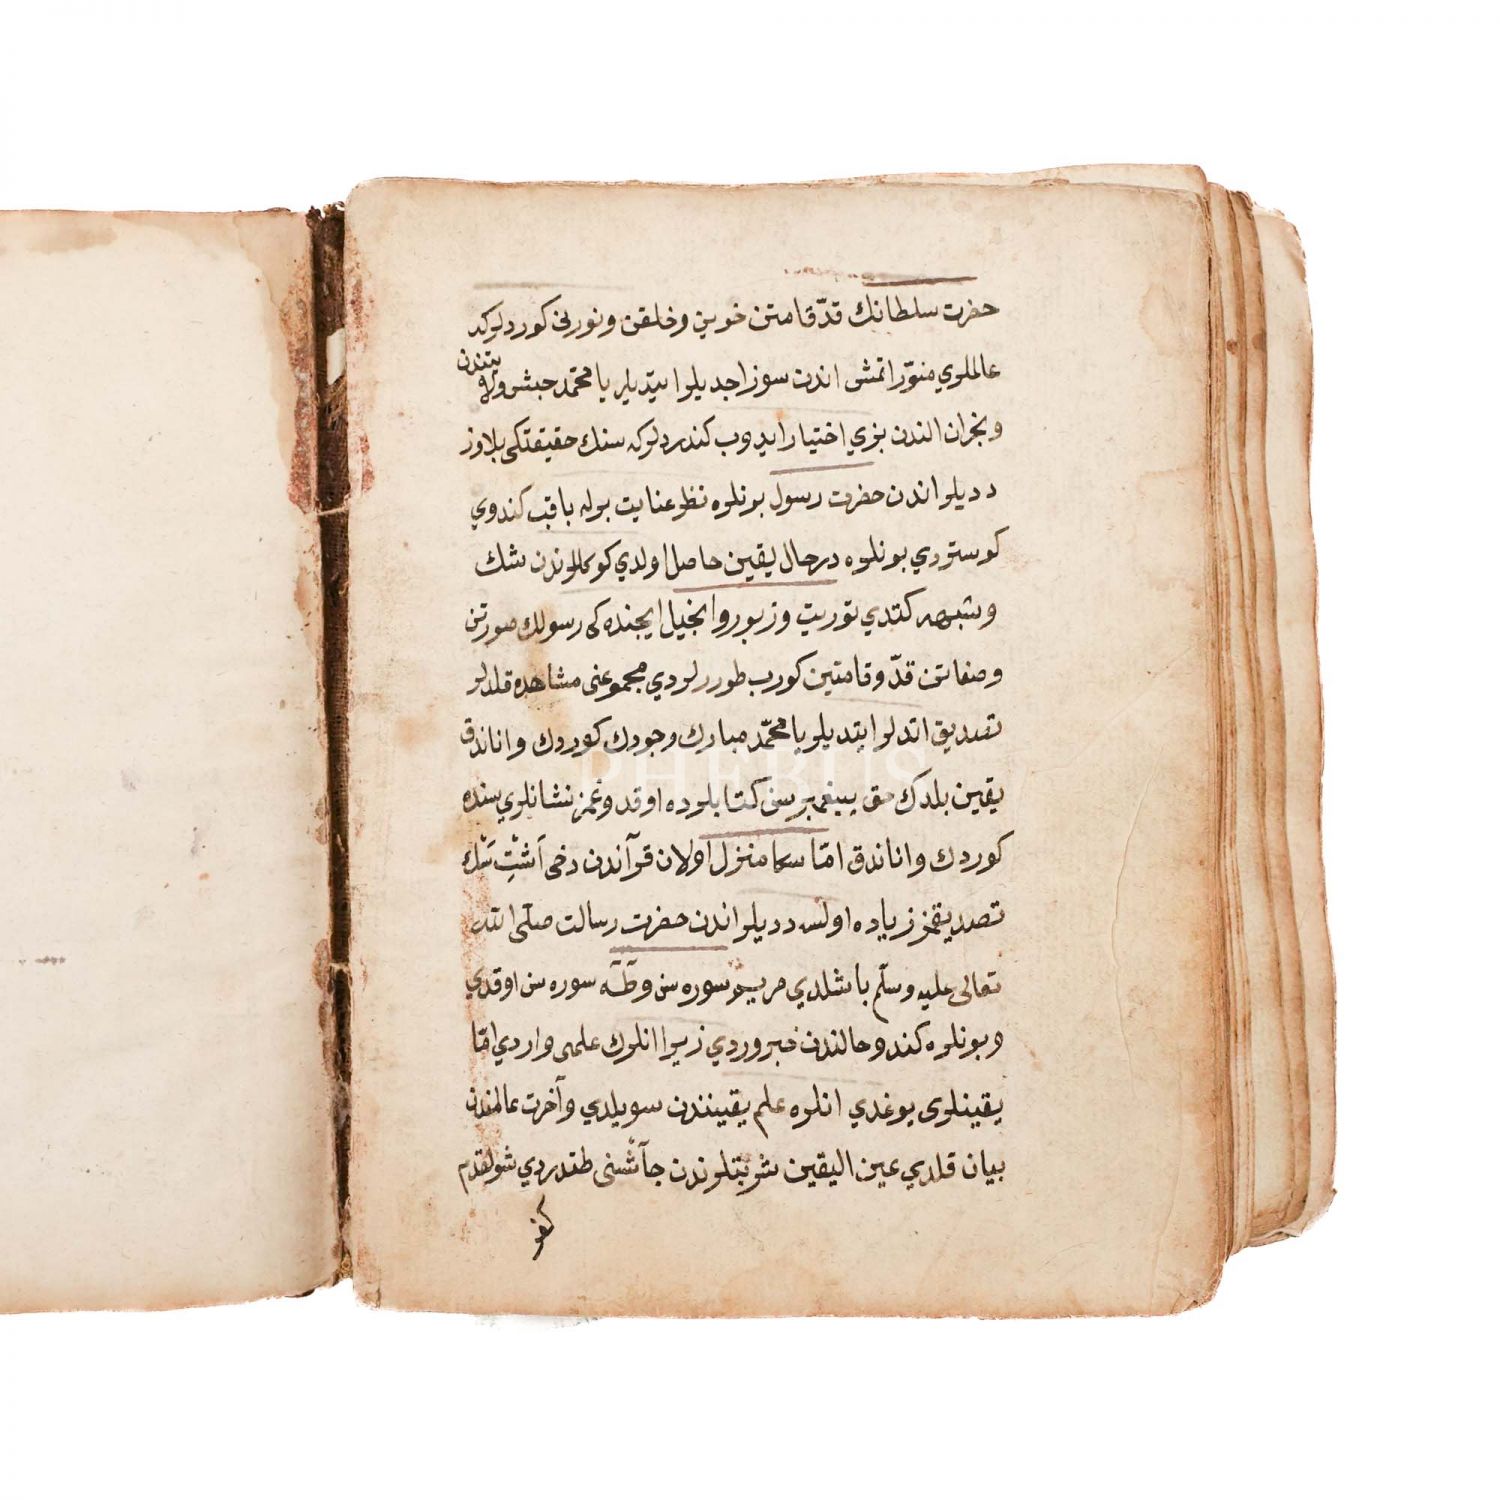 حضرت سلطانك قدّ قامتن خوين وخلقن ونورنى كوردلركه
عالملري منوّر اتمش اندن سوز اجديلر ايتديلر يا محمّد حبش ولايتندن
ونجران الندن بزي اختيار ايدوب كندردلركه سنك حقيقتكى بلاوز
دديلر اندن حضرت رسول بونلره نظر عنايت برله باقب كندوي
كوستردي بونلره درحال يقين حاصل اولدي كوكللرندن شك
وشبهه كتدي توريت وزبور وانجيل ايجنده كى رسولك صورتن
وصفاتن قدّ وقامتين كورب طوررلردي مجموعنى مشاهده قلدلر
تصديق اتدلر ايتديلر يا محمّد مبارك وجودك كوردك واناندق
يقين بلدك حق پيغمبرسن كتابلرده اوقدوغمز نشانلري سنده
كوردك واناندق امّا سكا منزل اولان قرآندن دخى اشتسك
تصديقمز زياده اولسه دديلر اندن حضرت رسالت صلّى الله
تعالى عليه وسلّم باشلدي مريم سوره سن وطٰهٰ سوره سن اوقدي
وبونلره كندو حالندن خبر وردي زيرا انلرك علمى واردي امّا
يقينلرى يوغدي انلره علم يقينندن سويلدي وآخرت عالمندن
بيان قلدي عين اليقين شربتلرندن جاشنى طتدردي شولقدم
PHEBUS